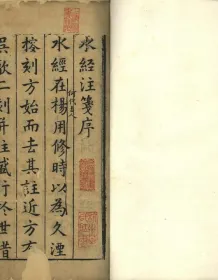 水經注箋序
水經在楊用修時以為久湮
挍刻方始而去其註近方有
吳歙二刻併註盛行於世昔